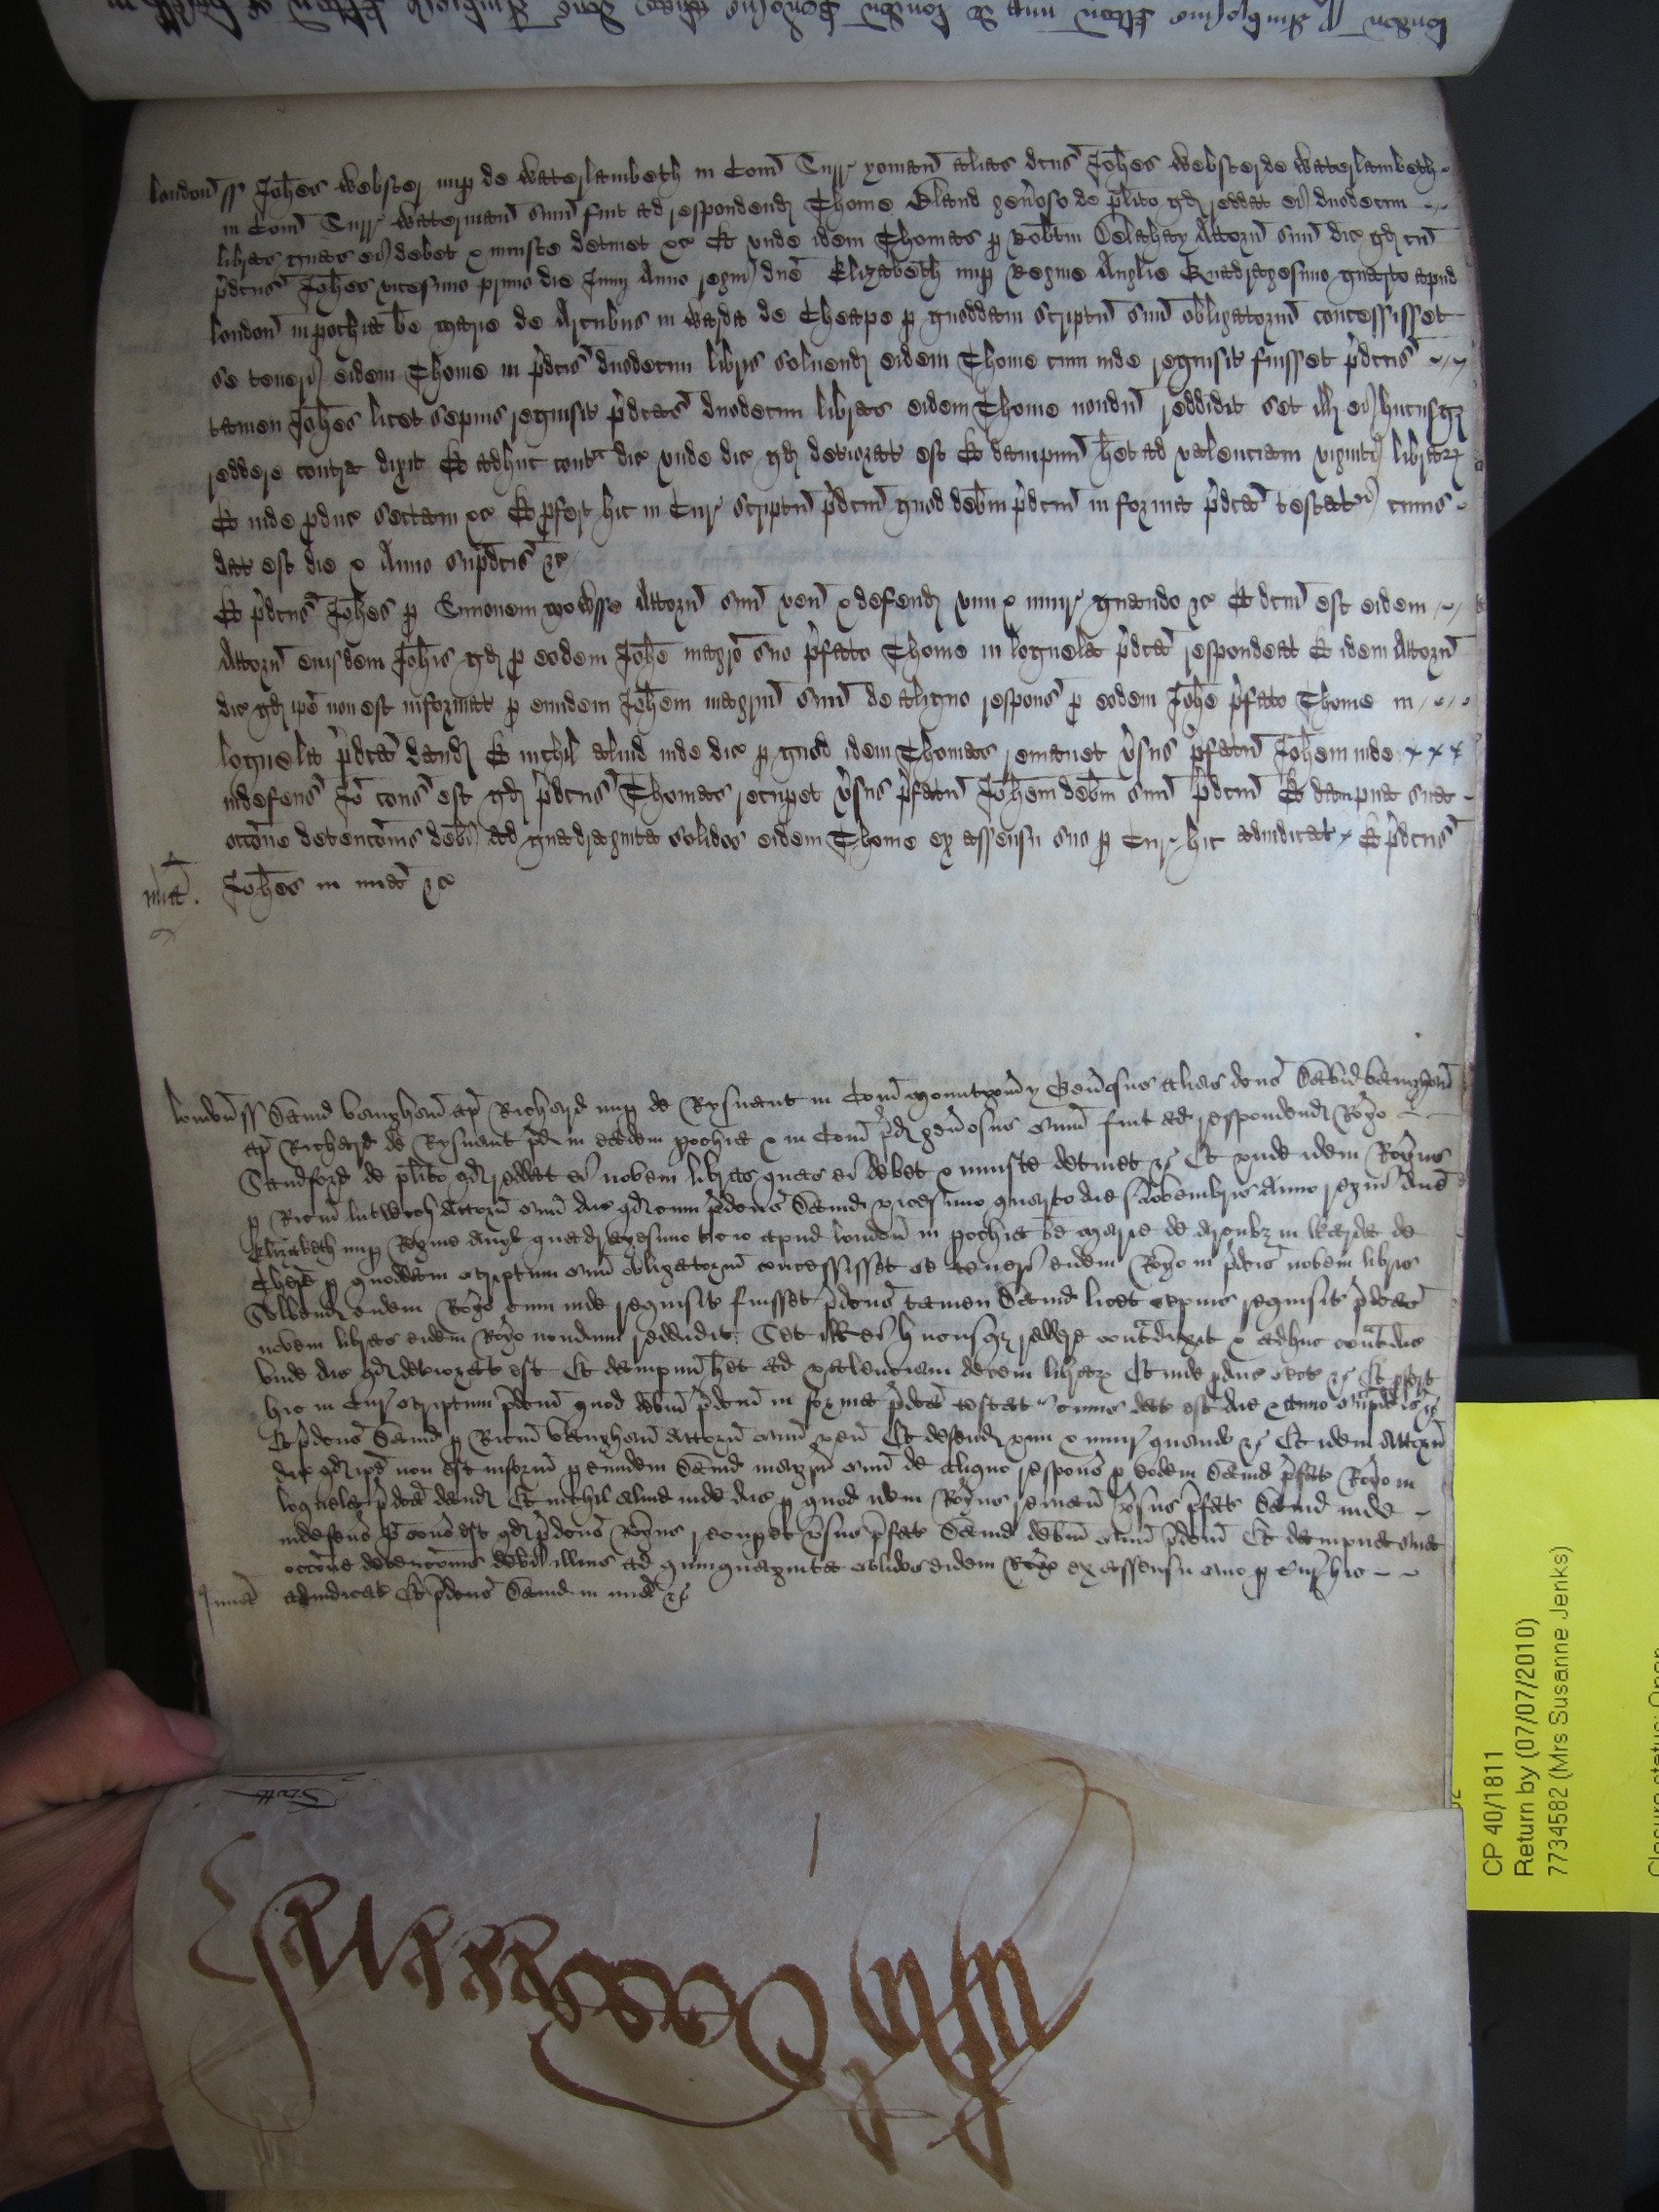 london ss Johes Webster nup de Waterlambeth in Com Surr yoman alias dcus Johes Webster de Waterlambeth
in Com Surr Waterman sum fuit ad respondend Thome Bland gen'oso de plito qd reddat ei duodecim
libras quas ei debet & iniuste detinet &c Et unde idem Thomas p Robtm Delahay Attorn suu dic qd cu
pdcus Johes vicesimo primo die Junij Anno regni dne Elizabeth nup Regine Anglie Quadragesimo quarto apud
london in pochia be Marie de Arcubus in Warda de Cheape p quoddam scriptu suu obligatoriu concessisset
se teneri eidem Thome in pdcis duodecim libris solvend eidem Thome cum inde requisit fuisset pdcus
tamen Johes licet sepius requisit pdcas duodecim libras eidem Thome nondu reddidit set ill ei hucusqz
reddere contra dixit Et adhuc contr dic unde dic qd deteriorat est Et dampnu het ad valenciam viginti librarz
Et inde pduc sectam &c Et pfert hic in Cur scriptu pdcm quod debm pdcm in forma pdca testatr cuius
dat est die & Anno supdcis &c
Et pdcus Johes p Simonem Attorn suu ven & defend vim & iniur quando &c Et dcm est eidem
Attorn eiusdem Johis qd p eodem Johe magro suo pfato Thome in loquela pdca respondeat Et idem Attorn
dic qd ipe non est informat p eundem Johem magrm suu de aliquo respons p eodem Johe pfato Thome in
loquela pdca dand Et nichil aliud inde dic p quod idem Thomas remanet vsus pfatu Johem inde
indefens Io cons est qd pdcus Thomas recupet vsus pfatu Johem debm suu pdcm Et dampna sua
occone detencois debi ad quadraginta solidos eidem Thome ex assensu suo p Cur hic adiudicat Et pdcus
mia. Johes in mia &c
london ss David Vaughan ap Richard nup de Rysnant in Com Mountgomy Gen'osus alias dcus David Vaughan
ap Richard de Rysnant pd in eadem pochia & in Com pd gen'osus sum fuit ad respondend Rogo
Sandford de plito qd reddat ei novem libras quas ei debet & iniuste detinet &c Et unde idem Rogus
p Ricm lutwich Attorn suu dic qd cum pdcus David vicesimo quarto die Novembris Anno regni dne
Elizabeth nup Regine Angl quadragesimo tcio apud london in pochia be Marie de Arcubz in Warda de
Chepe p quoddam scriptum suu obligatoriu concessisset se teneri eidem Rogo in pdcis novem libris
Solvend eidem Rogo cum inde requisit fuisset pdcus tamen David licet sepius requisit pdcas
novem libras eidem Rogo nondum reddidit Set ill ei hucusqz reddere contradixit & adhuc contradic
Unde dic qd deteriorat est Et dampnu het ad valenciam decem librarz Et inde pduc sect &c Et pfert
hic in Cur scriptum pdcm quod debm pdcm in forma pdca testat cuius dat est die & anno supdcis &c
Et pdcus David p Ricm Vaughan Attorn suu ven Et defend vim & iniur quando &c Et idem Attorn
dic qd ipe non est inform p eundem David magrm suu de aliquo respons p eodem David pfat Rogo in
loquela pdca dand Et nichil aliud inde dic p quod idem Rogus remanet vsus pfat David inde
indefens Io cons est qd pdcus Rogus recupet vsus pfat David debm suu pdcm Et dampna sua
occone detencois debi illius ad quinquaginta solidos eidem Rogo ex assensu suo p Cur hic
mia adiudicat Et pdcus David in mia &c
Scott
CP 40/1811
Return by (07/07/2010)
7734582 (Mrs Susanne Jenks)